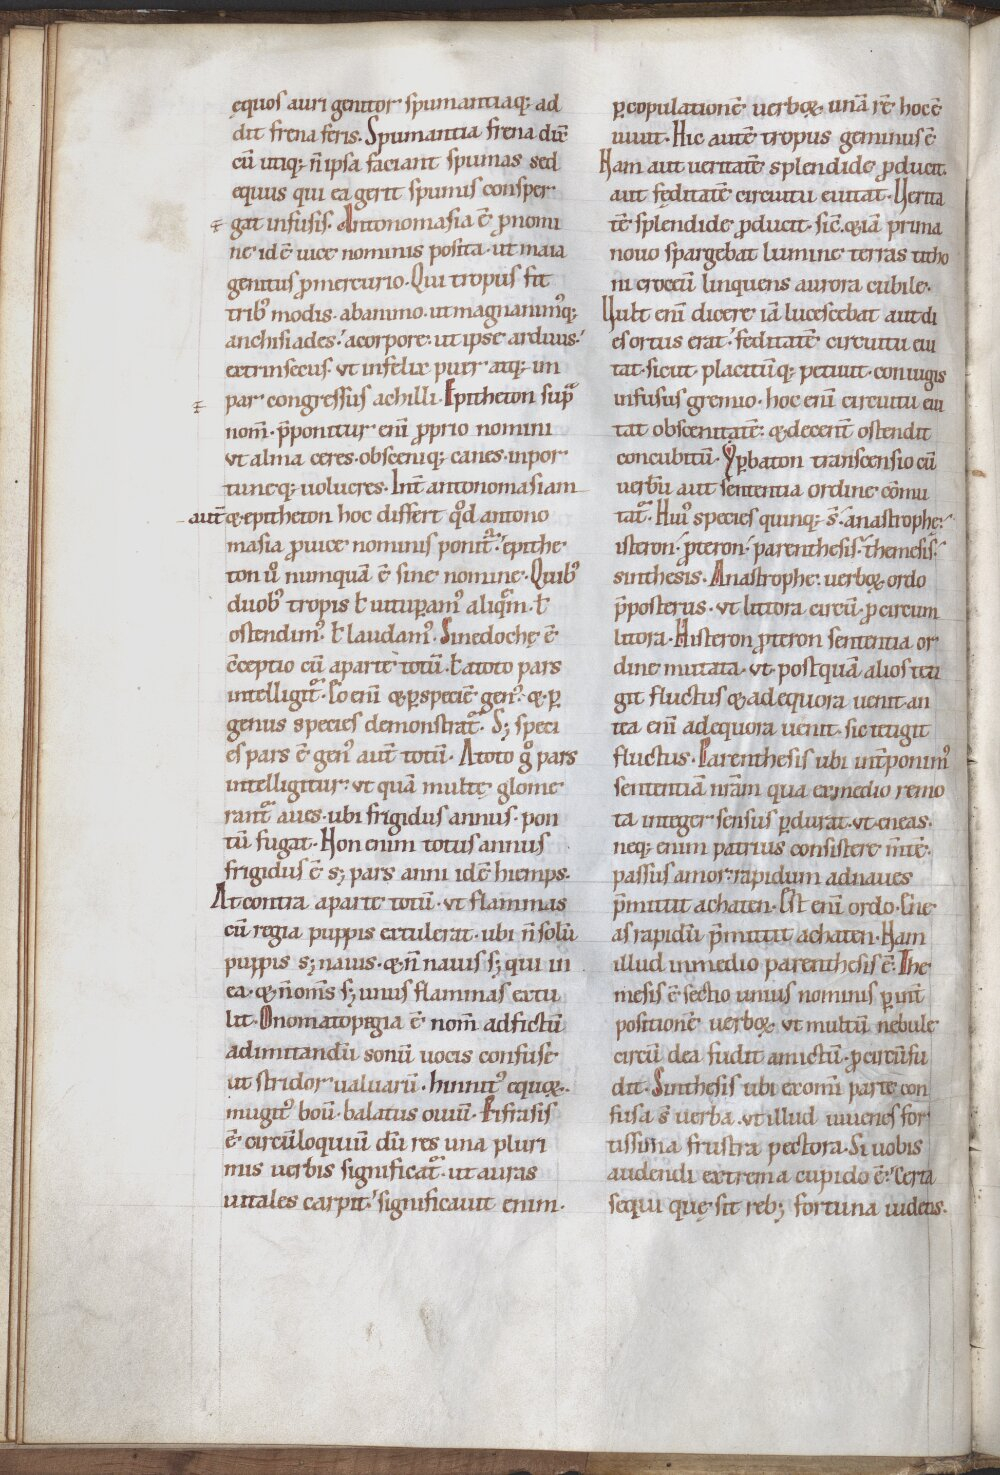 ęquos auri genitor spumantiaq; ad
dit frena feris. Spumantia frena dnr̄
cū utiq; ñ ipsa faciant spumas sed
equus qui ea gerit spumis consper
gat infusis. Antonomasia ē ꝓnomi
ne id ē uice nominis posita. ut maia
genitus ꝓ mercurio. Qui tropus fit
tribꝰ modis. ab animo. ut magnanimꝰq;
anchisiades. a corpore. ut ipse arduus.
extrinsecus. vt infelix puer atq; im
par congressus achilli. Epitheton sup̄
nom̄. p̄ponitur enī ꝓprio nomini
vt alma ceres. obsceniq; canes. inpor
tuneq; uolucres. Int̄ antonomasiam
aut̄ & epitheton hoc differt qd̄ antono
masia ꝓ uice nominis ponit᷑. epithe
ton u͛o numquā ē sine nomine. Quibꝰ
duobꝰ tropis ł uituꝑamꝰ aliq̄m. ł
ostendimꝰ. ł laudamꝰ. Sinedochę ē
c̄ceptio cū a parte totū. ł a toto pars
intelligit᷑. Eo enī & ꝑ speciē genꝰ. & ꝑ
genus species demonstrat᷑. S; speci
es pars ē genꝰ aut̄ totū. A toto g̊ pars
intelligitur. vt quā multę glome
rant᷑ aues. ubi frigidus annus. pon
tū fugat. Non enim totus annus
frigidus ē s; pars anni id ē hiemps.
At contra a parte totū. vt flammas
cū regia puppis extulerat. ubi ñ solū
puppis s; nauis. & ñ nauis s; qui in
ea. & ñ om̄s s; unus flammas extu
lit. Onomatopęgia ē nom̄ adfictū
ad imitandū sonū uocis confuse
ut stridor ualuarū. hinnitꝰ equoꝝ.
mugitꝰ boū. balatus ouiū. Pifrasis
ē circūloquiū dū res una pluri
mis uerbis significat᷑. ut auras
uitales carpit. significauit enim.
ꝑ copulationē uerboꝝ unā rē hoc ē
uiuit. Hic autē tropus geminus ē
Nam aut ueritatē splendide ꝓducit.
aut fęditatē circuitu euitat. Uerita
tē splendide ꝓducit. sic̄ & iā prima
nouo spargebat lumine terras titho
ni croceū linquens aurora cubile.
Uult enī dicere iā lucescebat aut di
es ortus erat. feditatē circuitu eui
tat. sicut placitūq; petiuit. coniugis
infusus gremio. hoc enī circuitu eui
tat obscenitatē. & decent̄ ostendit
concubitū. Yꝑbaton transcensio cū
uerbū aut sententia ordine c̄omu
tat᷑. Huiꝰ species quinq; s̄. anastrophe.
isteron. ꝓteron. parenthesis. themesis.
sinthesis. Anastrophe. uerboꝝ ordo
p̄posterus. vt littora circū. ꝓ circum
litora. Histeron ꝓteron sententia or
dine mutata. vt postquā altos teti
git fluctus & ad equora uenit. an
tea enī ad equora uenit. sic tetigit
fluctus. Parenthesis ubi int̄ponimꝰ
sententiā nr̄am qua ex medio remo
ta integer sensus ꝑdurat. vt eneas.
neq; enim patrius consistere m̄tē.
passus amor. rapidum ad naues
p̄mittit achaten. Est enī ordo. Ene
as rapidū p̄mittit achaten. Nam
illud in medio parenthesis ē. The
mesis ē sectio unius nominis ꝑ int̄
positionē uerboꝝ vt multū nebule
circū dea fudit amictū. ꝓ circūfu
dit. Sinthesis ubi ex omī parte con
fusa s̄ uerba. vt illud iuuenes for
tissima frustra pectora. Si uobis
audendi extrema cupido ē. Certa
sequi quę sit reb; fortuna uidetis.